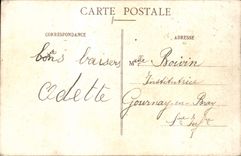 CARTE POSTALE
CORRESPONDANCE
ADRESSE
Bons baisers
Odette
Melle Boivin
Institutrice
Gournay-en-Bray
Sne Infre